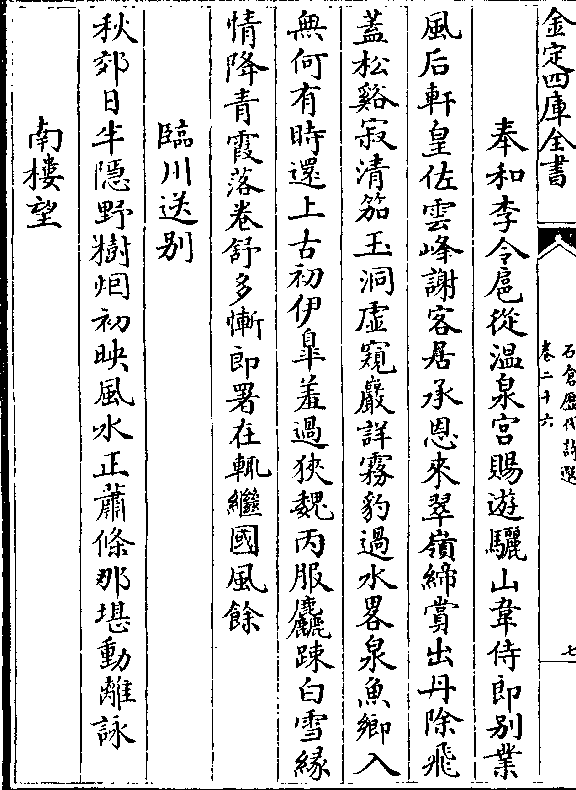 金定四庫全書
石倉歷代詩選
卷二十六
七
奉和李令扈從温泉宮賜遊驪山韋侍郎别業
風后軒皇佐雲峰謝客居承恩來翠嶺締賞出丹除飛
蓋松谿寂清笳玉洞虚窺巖詳霧豹過水畧泉魚鄉入
無何有時還上古初伊臯羞過狹魏丙服麤踈白雪縁
情降青霞落卷舒多慚郎署在輒繼國風餘
臨川送别
秋郊日半隱野樹烟初映風水正蕭條那堪動離詠
南樓望